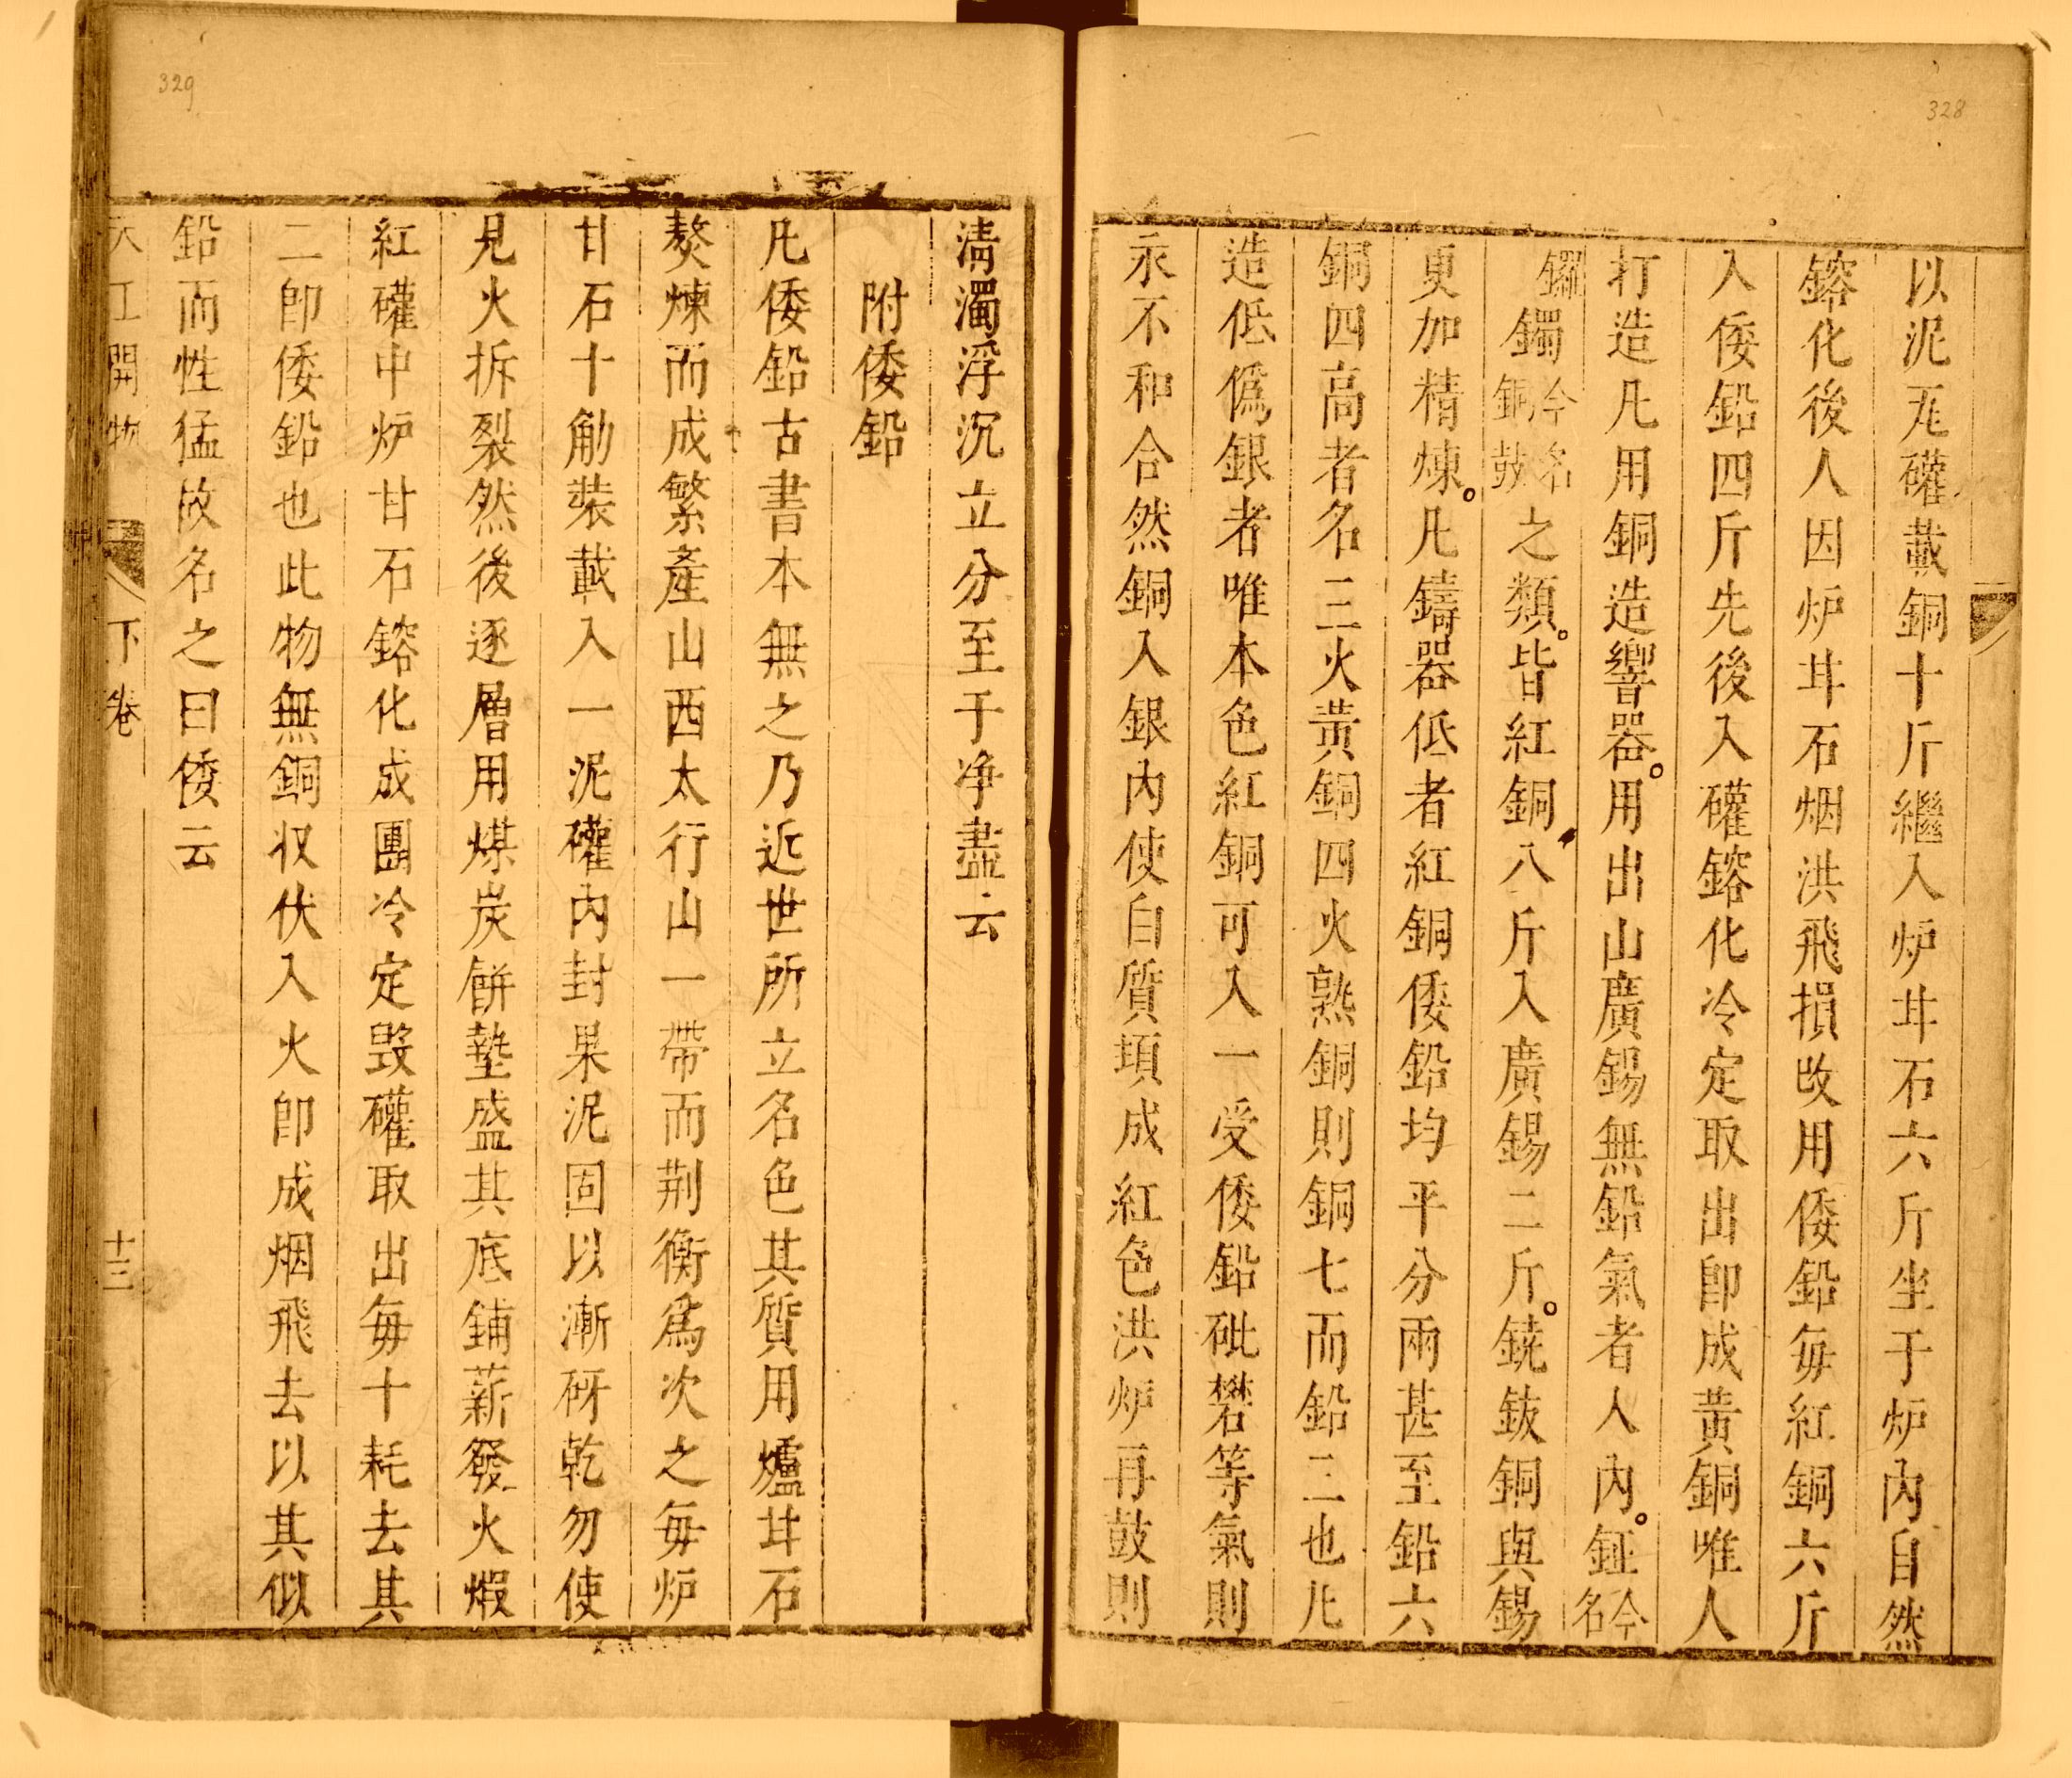 328
以泥瓦礶載銅十斤繼入炉甘石六斤坐于炉內自然
鎔化後人因炉甘石烟洪飛損改用倭鉛每紅銅六斤
入倭鉛四斤先後入礶鎔化冷定取出卽成黃銅唯人
打造凡用銅造響器。用出山廣錫無鉛氣者入內。鉦今名
鑼鐲今名銅鼓之類。皆紅銅八斤入廣錫二斤。鐃鈸銅與錫
更加精煉。凡鑄器低者紅銅倭鉛均平分兩甚至鉛六
銅四高者名三火黃銅四火熟銅則銅七而鉛三也凡
造低僞銀者唯本色紅銅可入一受倭鉛砒礬等氣則
永不和合然銅入銀內使白質頃成紅色洪炉再鼓則
329
清濁浮沉立分至于净盡云
附倭鉛
凡倭鉛古書本無之乃近世所立名色其質用爐甘石
熬煉而成繁產山西太行山一帶而荆衡爲次之每炉
甘石十觔裝載入一泥礶內封裹泥固以漸砑乾勿使
見火拆裂然後逐層用煤炭餅墊盛其底鋪薪發火煆
紅礶中炉甘石鎔化成團冷定毀礶取出每十耗去其
二卽倭鉛也此物無銅収伏入火卽成烟飛去以其似
鉛而性猛故名之曰倭云
天工開物 下卷 十三